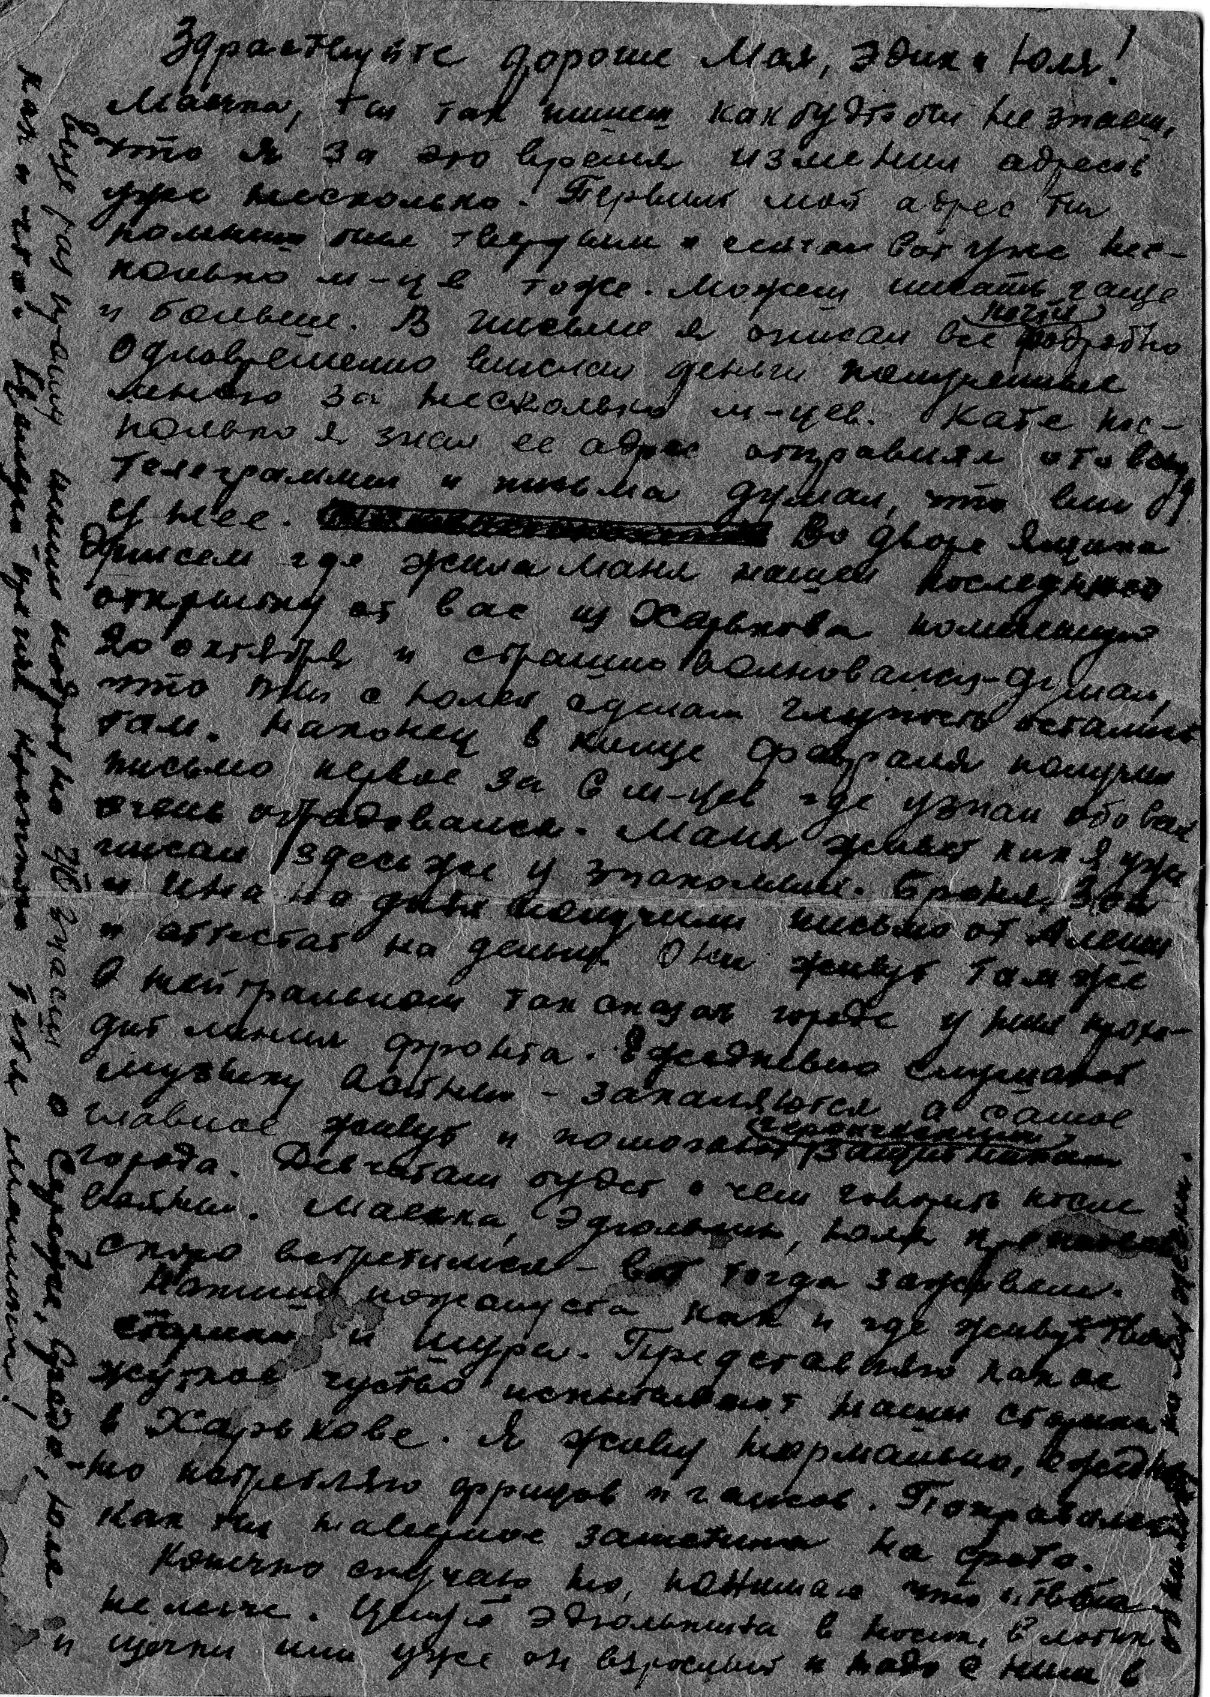 Здравствуйте дорогие Мая, Эдик и Юля!
Маечка, ты так пишеш как будто бы не знаеш,
что я за это время изменил адресов
уже несколько. Первый мой адрес ты
помниш был твердым и сейчас вот уже нес-
колько м-цев тоже. Можеш писать чаще
и больше. В письме я описал все почти подробно
Одновременно выслал деньги полученные
мною за несколько м-цев. Кате нас-
колько я знал ее адрес отправлял ото всюду
телеграммы и письма думал, что вы
у нее. Во дворе Ящика
где жила Маня нашел последнюю
открытку от вас из Харькова
20 октября и страшно волновался - думал,
что ты с Юлей сделали глупость остались
там. Наконец в конце февраля получил
письмо первое за 6 м-цев где узнал обо вас
очень обрадовался. Маня живет как я уже
писал здесь же у знакомых. Броня, Зоя
и Инна на днях получили письмо от Алеши
и аттестат на деньги. Они живут там же
О нейтральном так сказать городе у них прохо-
дит линия фронта. Ежедневно слушают
музыку войны - закаляются а самое
главное живут и помогают героическим защитникам
города. Девчатам будет о чем говорить после
войны. Маечка, Эдюльчик, Юля
скоро встретимся - вот тогда заживем.
Напиши пожалуста как и где живут твои
старики и Шура. Представляю какое
жуткое чуство испытывают наши старики
в Харькове. Я живу нормально,
но истребляю фрицов и гансов. Поправился
как ты наверное заметила на фото.
Конечно скучаю но, понимаю что и тебе
не легче. Целуй Эдюльчика в носик, в лобик
и щечки или уже он взрослый и надо с ним в
Еще раз прошу пиши подробно
о Сереже,
как и что. Целую